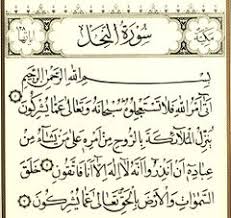 سورة النحل
بسم الله الرحمن الرحيم
أتى أمر الله فلا تستعجلوه سبحانه وتعالى عما يشركون
ينزل الملائكة بالروح من أمره على من يشاء من
عباده أن أنذروا أنه لا إله إلا أنا فاتقون خلق
السموات والأرض بالحق تعالى عما يشركون